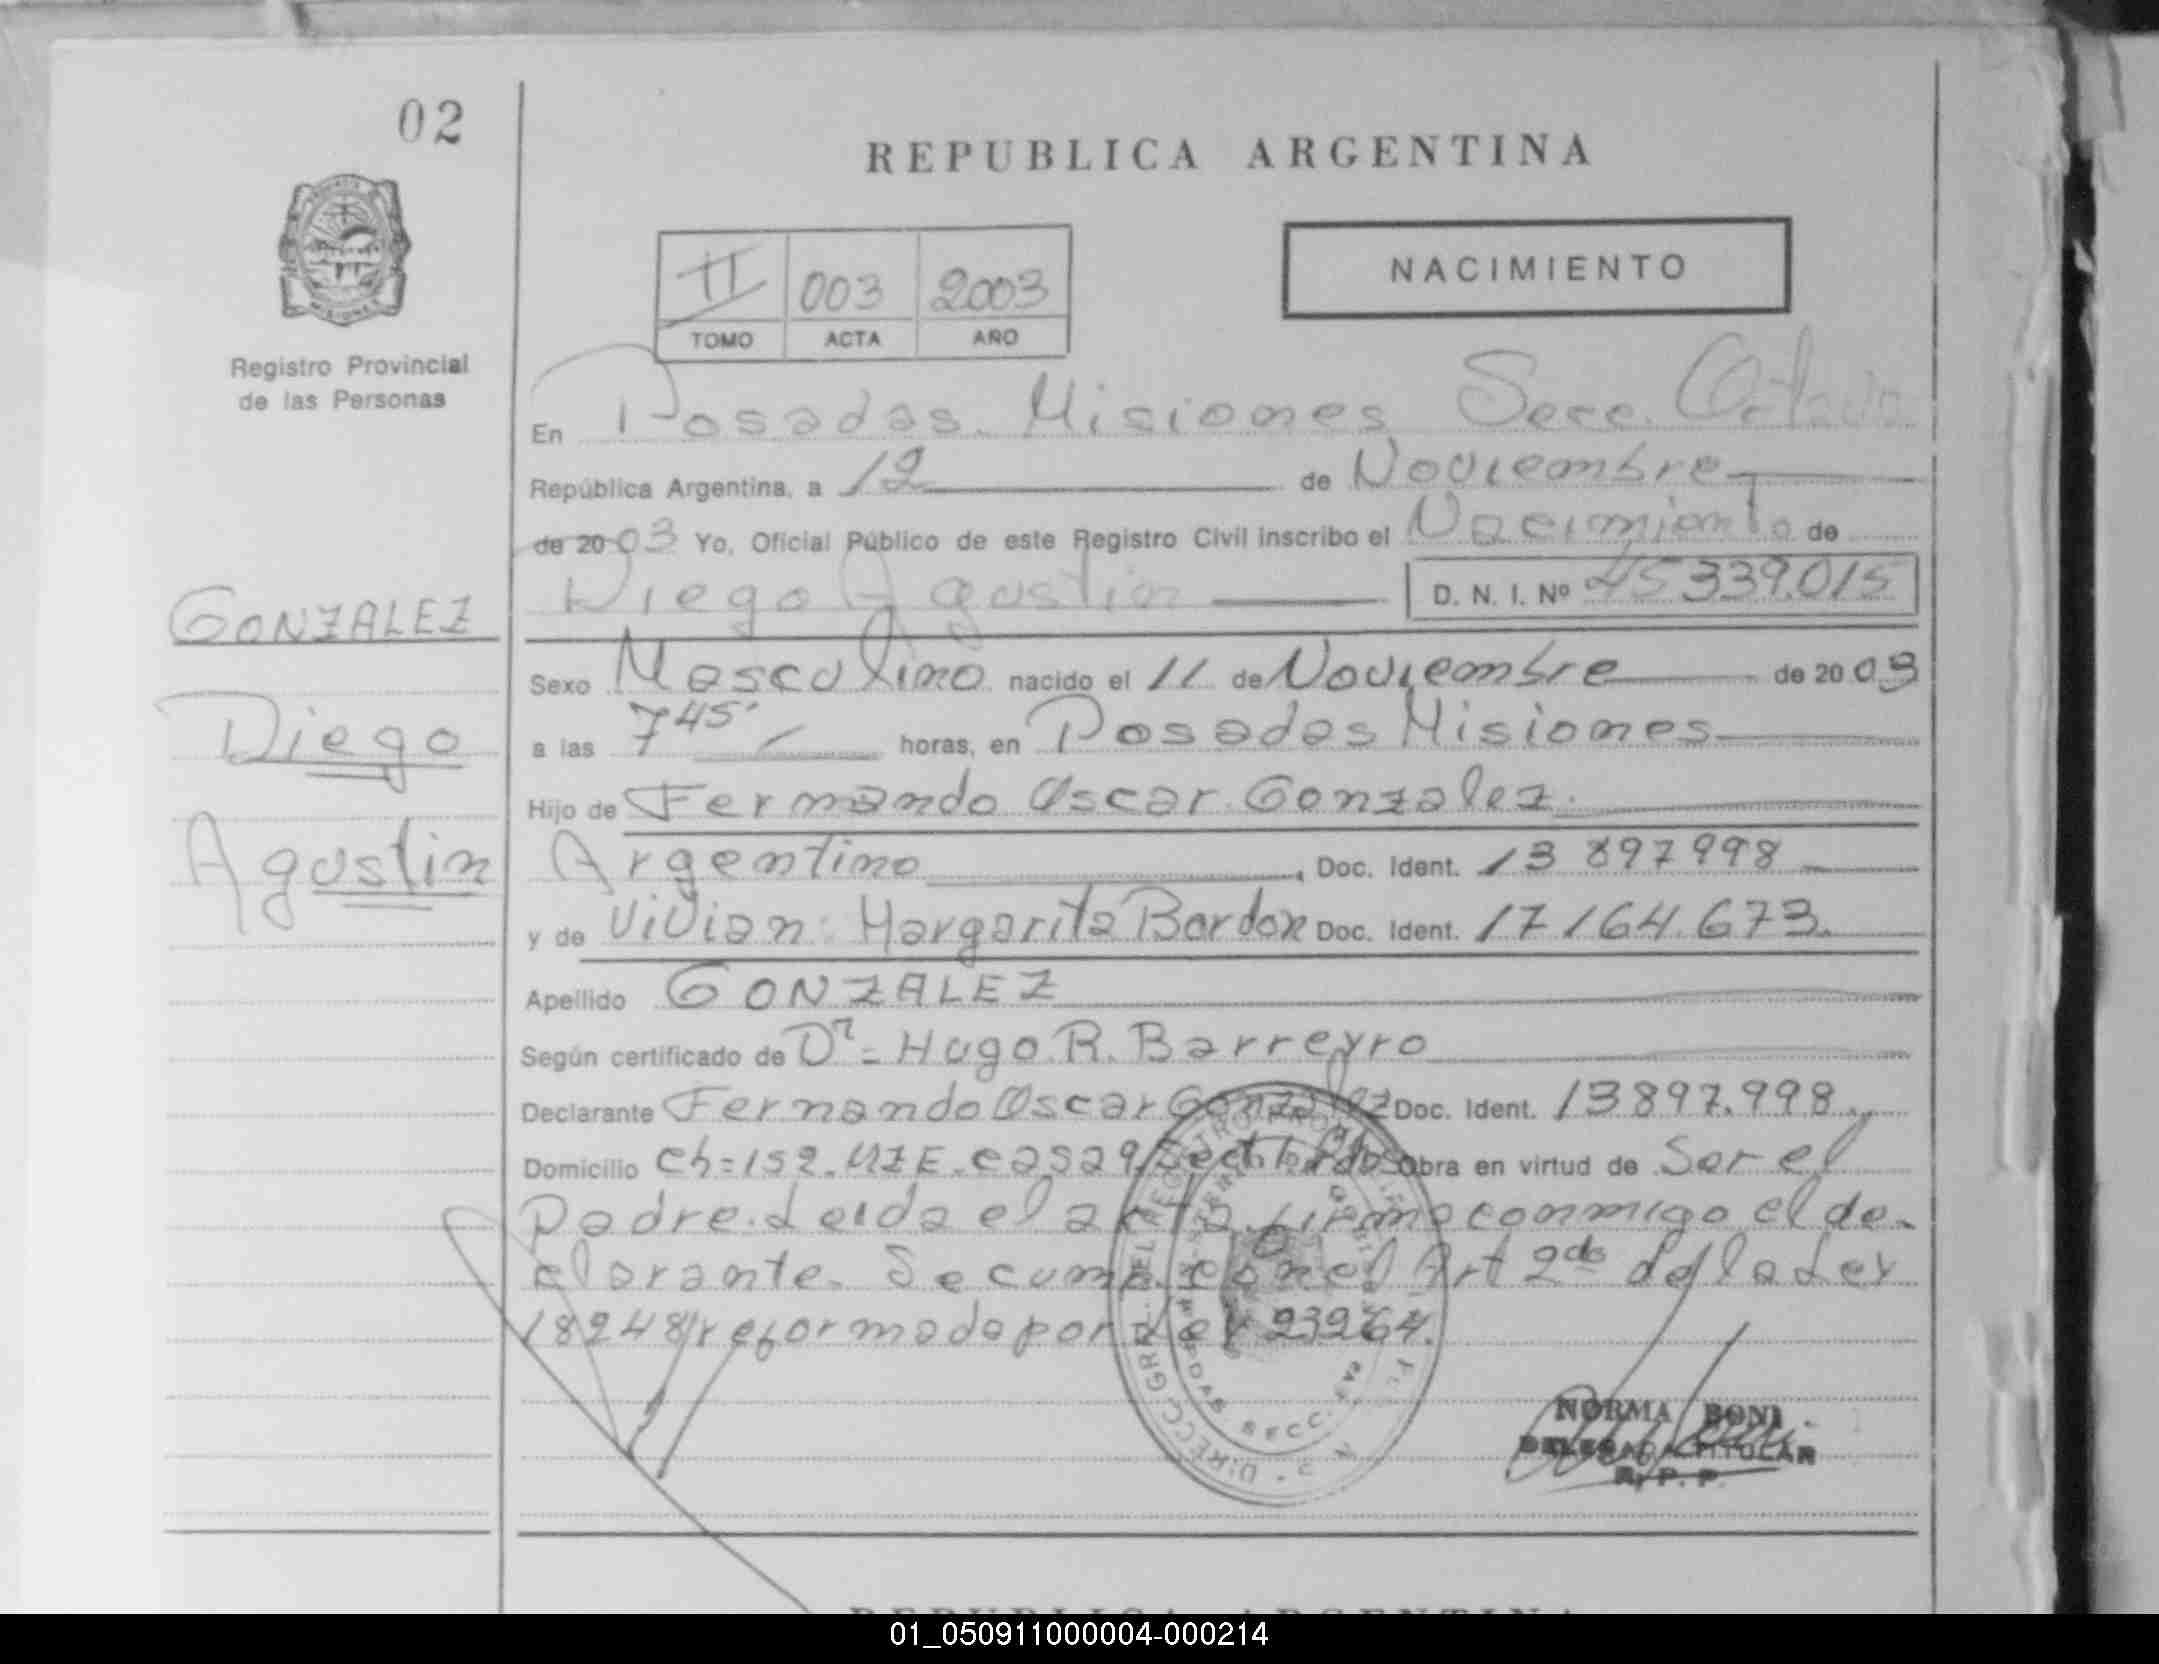 02
REPUBLICA ARGENTINA
NACIMIENTO
II 003 2003
TOMO ACTA AÑO
Registro Provincial
de las Personas
En Posadas. Misiones Secc. Octava
República Argentina, a 12 de Noviembre
de 2003 Yo, Oficial Público de este Registro Civil inscribo el Nacimiento de
Diego Agustin D. N. I. Nº 45339.015
GONZALEZ
Diego
Agustin
Sexo Masculino nacido el 11 de Noviembre de 2003
a las 7 45' horas, en Posadas Misiones
Hijo de Fernando Oscar Gonzalez.
Argentino, Doc. Ident. 13 897998
y de Vivian Margarita Bordon Doc. Ident. 17164.673.
Apellido GONZALEZ
Según certificado de Dr= Hugo R. Barreyro
Declarante Fernando Oscar Gonzalez Doc. Ident. 13897.998.
Domicilio Ch=152. casa 9 Obra en virtud de Ser el
Padre. Leida el acta firma conmigo el de-
clarante. Se cumple con el Art 2do de la Ley
18248 reformada por Ley 23264.
NORMA BONI
DELEGADA TITULAR
R. P. P.
REPUBLICA ARGENTINA
01_050911000004-000214